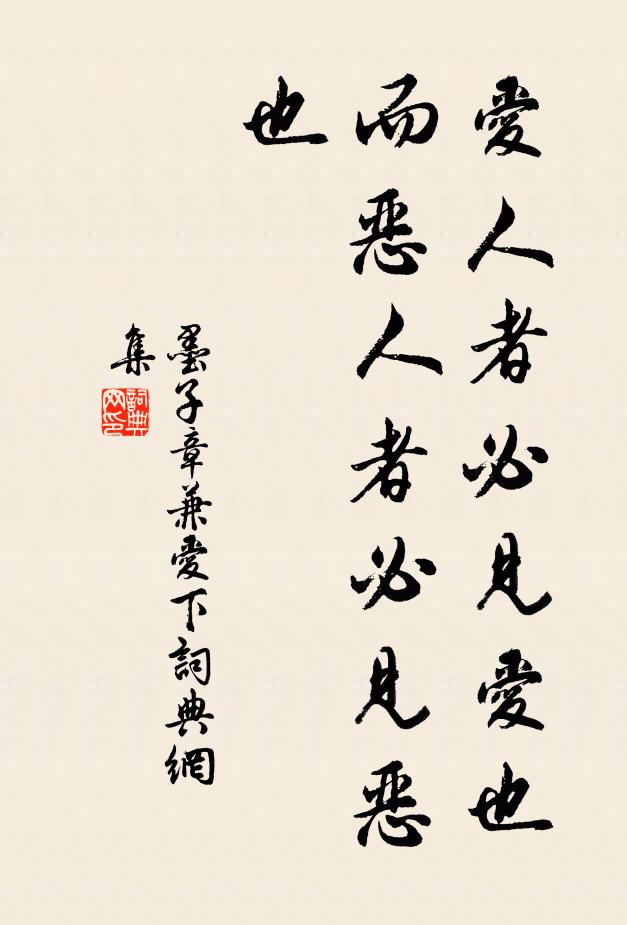 愛人者必見愛也
而惡人者必見惡
也
墨子章兼愛下詞典網
集
詞典
网印